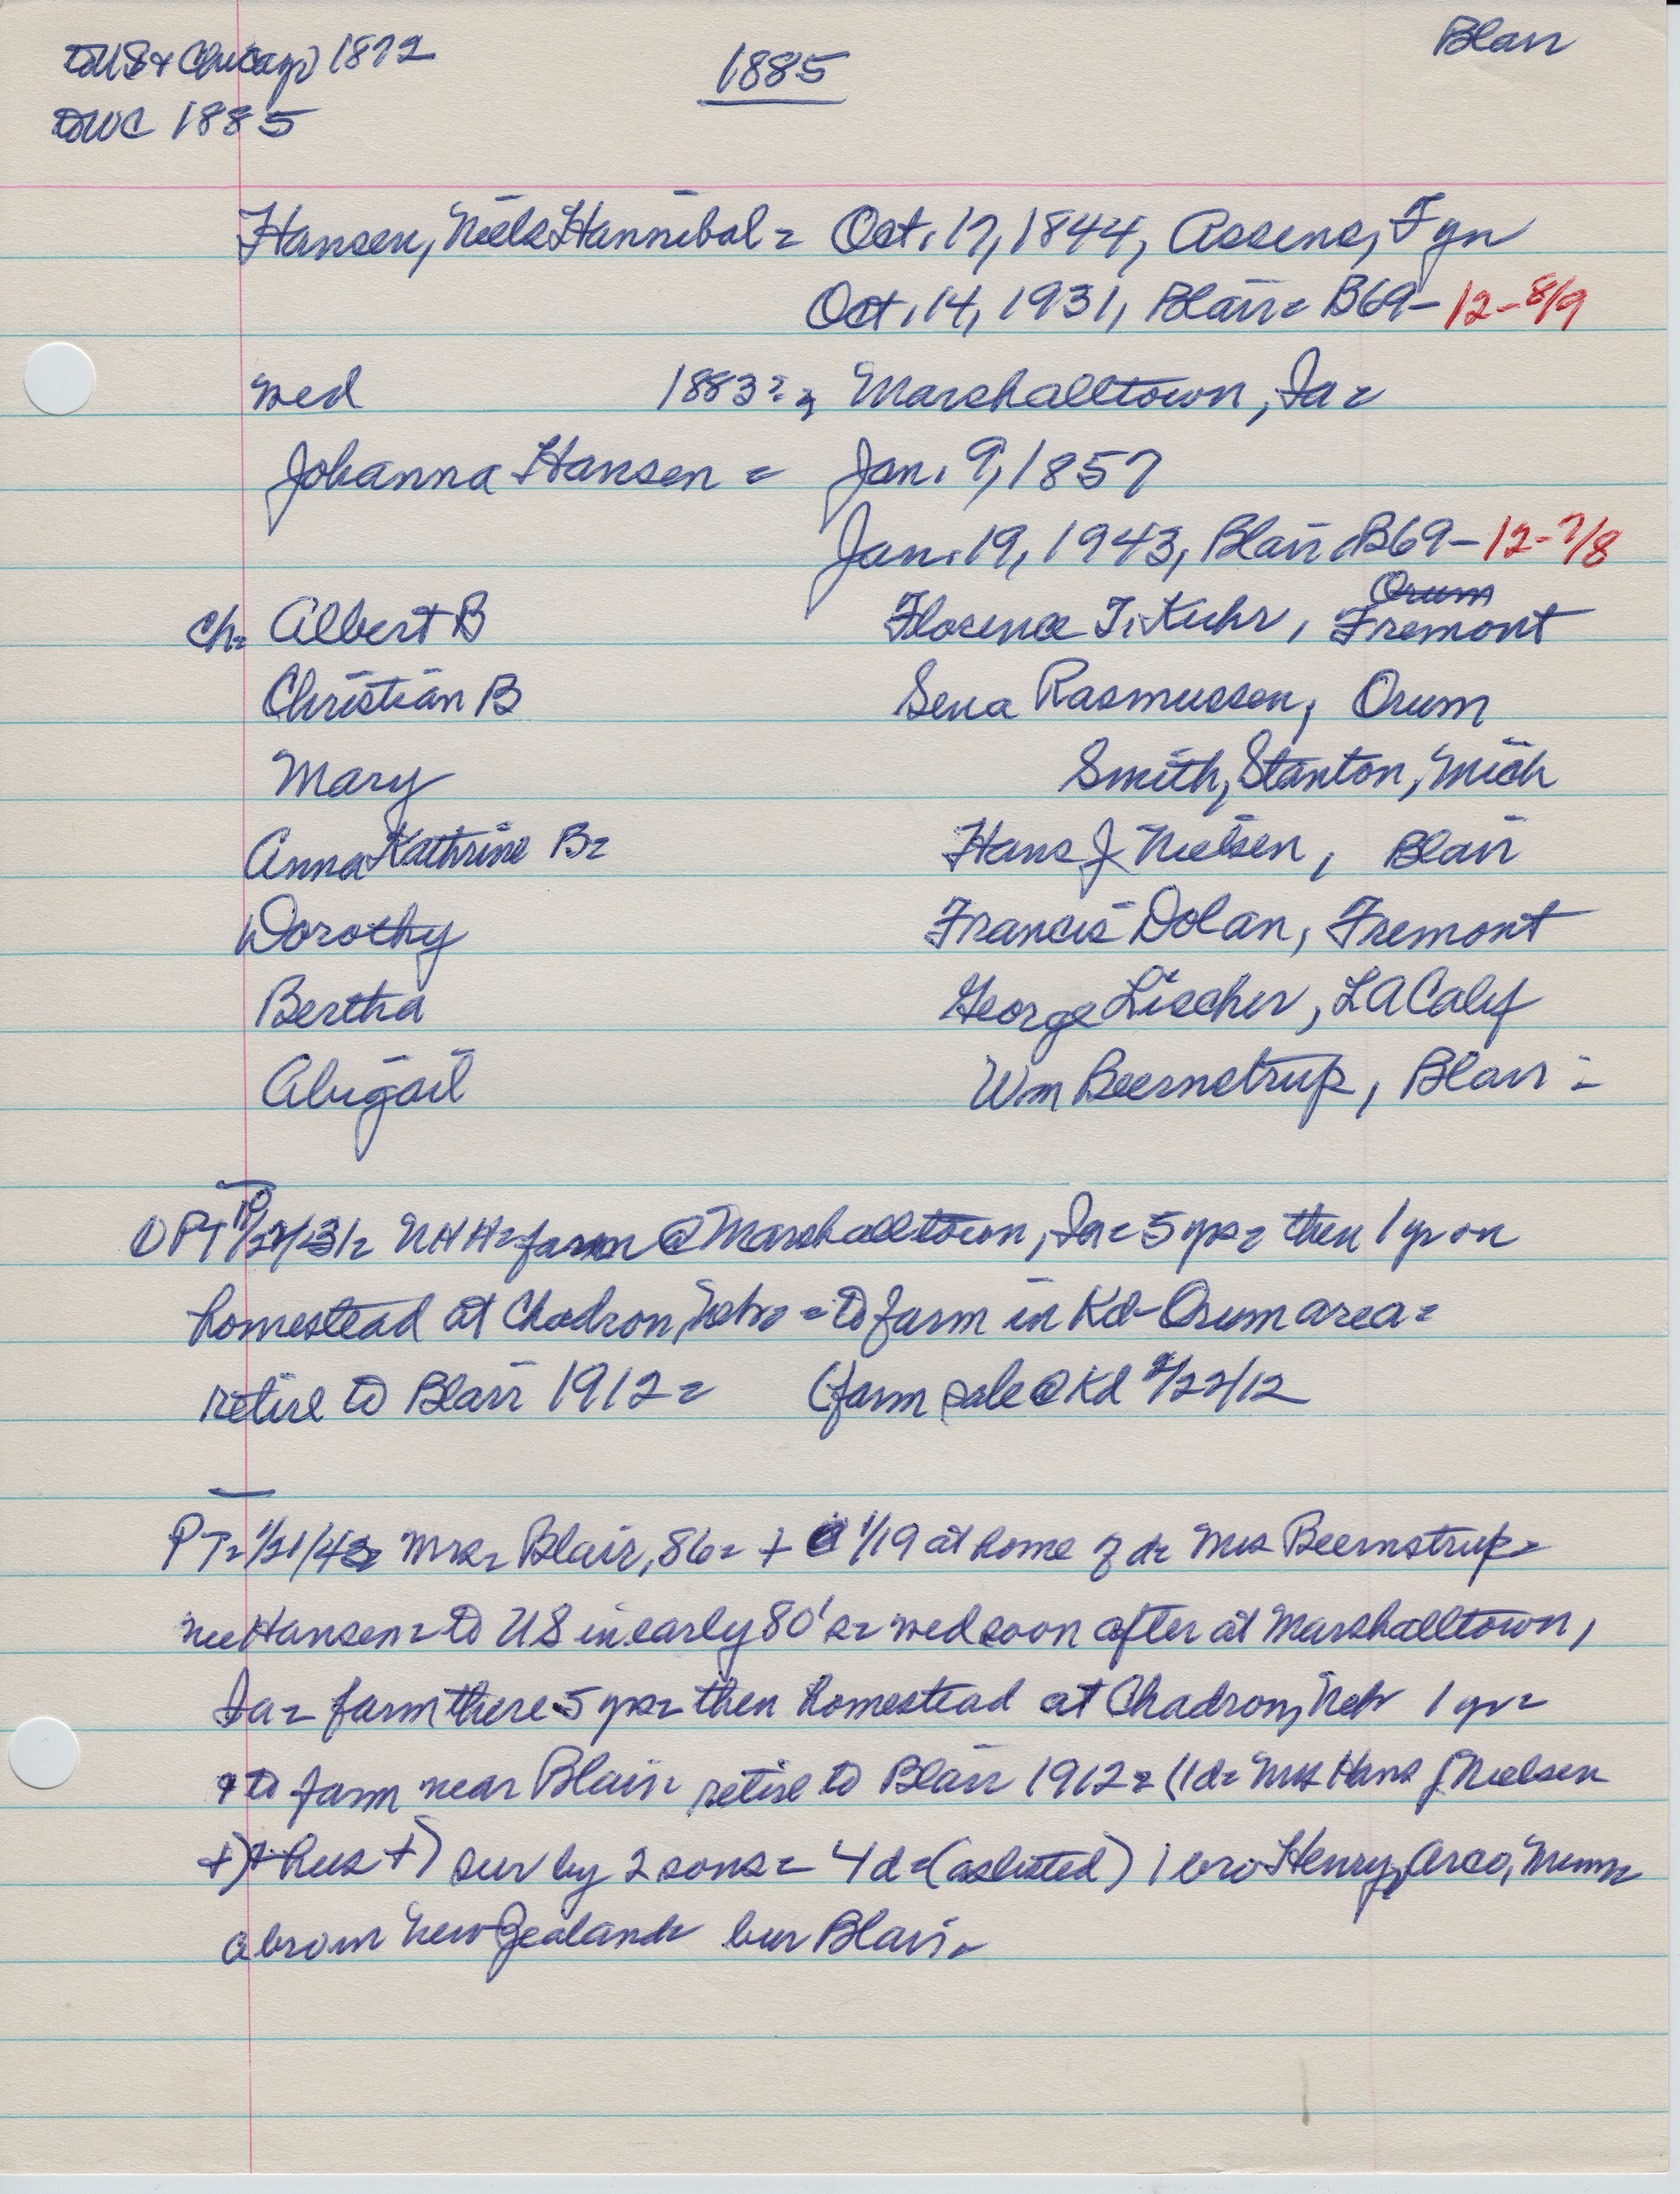 To US & Chicago 1872
Blair
1885
To WC 1885
Hansen, Niels Hannibal = Oct. 17, 1844, Assens, Fyn
Oct. 14, 1931, Blair = B69- 12-8/9
wed 1883?, Marshalltown, Ia =
Johanna Hansen = Jan. 9, 1857
Jan. 19, 1943, Blair = B69- 12-7/8
Orum
ch= Albert B Florence T. Kuhr, Fremont
Christian B Sena Rasmussen, Orum
Mary Smith, Stanton, Mich
Anna Kathrine B= Hans J Nielsen, Blair
Dorothy Francis Dolan, Fremont
Bertha George Lischer, LA Calif
Abigail Wm Beernstrup, Blair =
PT NHH= farm @ Marshalltown, Ia= 5 yrs= then 1 yr on
homestead at Chadron, Nebr= = to farm in Kd-Orum area=
retire to Blair 1912= (farm sale @ Kd 2/22/12
PT= 1/21/43= Mrs= Blair, 86= + 1/19 at home of d= Mrs Beernstrup=
nee Hansen= to US in early 80's= wed soon after at Marshalltown,
Ia= farm there 5 yrs= then homestead at Chadron, Nebr 1 yr=
+ to farm near Blair= retire to Blair 1912= (1 d= Mrs Hans J Nielsen
+) + hus +) sur by 2 sons= 4 d= (as listed) 1 bro Henry, Arco, Minn=
a bro in New Zealand= bur Blair=